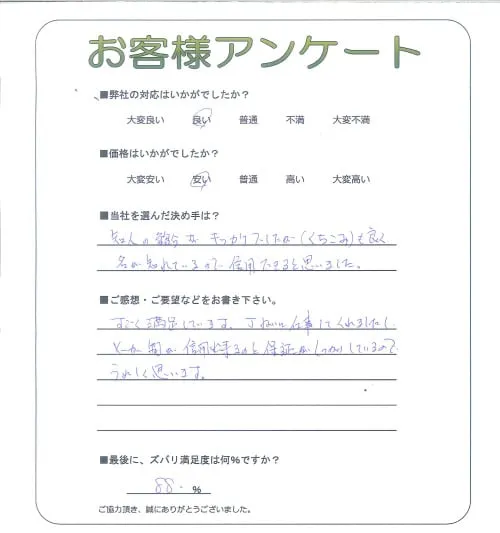 お客様アンケート
■弊社の対応はいかがでしたか？
大変良い 良い 普通 不満 大変不満
■価格はいかがでしたか？
大変安い 安い 普通 高い 大変高い
■当社を選んだ決め手は？
知人の紹介がキッカケでしたが(くちこみ)も良く
名が知れているので信用できると思いました。
■ご感想・ご要望などをお書き下さい。
すごく満足しています。丁ねいに仕事してくれましたし
信用出来るのと保証がしっかりしているので
うれしく思います。
■最後に、ズバリ満足度は何%ですか？
88. %
ご協力頂き、誠にありがとうございました。